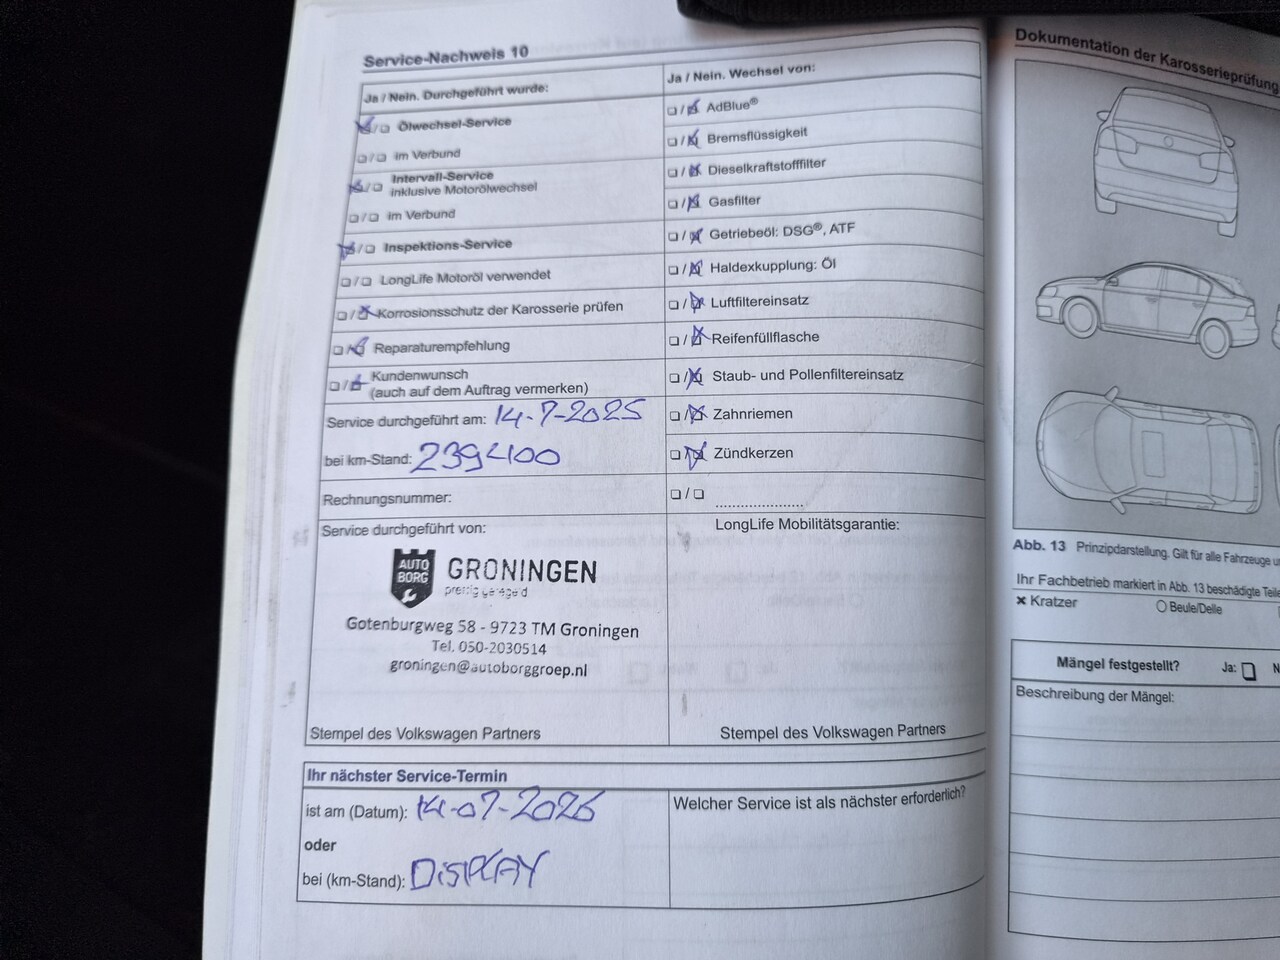 Service-Nachweis 10
Ja / Nein. Durchgeführt wurde:
Ölwechsel-Service
im Verbund
Intervall-Service
inklusive Motorölwechsel
im Verbund
Inspektions-Service
LongLife Motoröl verwendet
Korrosionsschutz der Karosserie prüfen
Reparaturempfehlung
Kundenwunsch
(auch auf dem Auftrag vermerken)
Service durchgeführt am: 14-7-2025
bei km-Stand:
Rechnungsnummer:
Service durchgeführt von:
AUTO BORG
GRONINGEN
prettig geregeld
Gotenburgweg 58 - 9723 TM Groningen
Tel. 050-2030514
groningen@autoborggroep.nl
Stempel des Volkswagen Partners
Ja / Nein. Wechsel von:
AdBlue®
Bremsflüssigkeit
Dieselkraftstofffilter
Gasfilter
Getriebeöl: DSG®, ATF
Haldexkupplung: Öl
Luftfiltereinsatz
Reifenfüllflasche
Staub- und Pollenfiltereinsatz
Zahnriemen
Zündkerzen
LongLife Mobilitätsgarantie:
Stempel des Volkswagen Partners
Ihr nächster Service-Termin
ist am (Datum): 14-07-2026
oder
bei (km-Stand): DISPLAY
Welcher Service ist als nächster erforderlich?
Dokumentation der Karosserieprüfung
Abb. 13 Prinzipdarstellung. Gilt für alle Fahrzeuge
Ihr Fachbetrieb markiert in Abb. 13 beschädigte Teile
× Kratzer
Beule/Delle
Mängel festgestellt? Ja:
Beschreibung der Mängel: